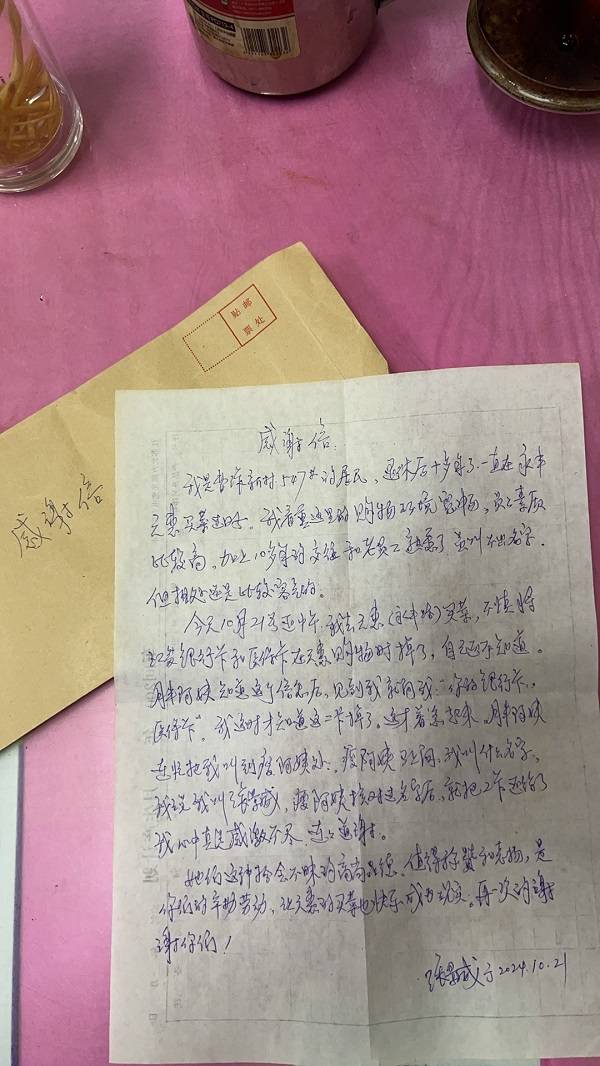 贴邮
票处
感谢信
感谢信
我是曹杨新村547号的居民,退休后十多年了一直在永丰
惠买菜过日子。我看重这里的购物环境宽畅,员工素质
比较高,加上10多年的交往和老员工熟悉了虽叫不出名字,
但相处还是比较客气的。
今天10月21号近中午,我去惠(永丰路)买菜,不慎将
工资银行卡和医保卡在惠购物时掉了,自己还不知道。
阿姨知道这个信息后,见到我就问我"你的银行卡、
医保卡"我这时才知道这二卡掉了。这才着急起来,阿姨
连忙把我叫到阿姨处,阿姨又问我叫什么名字,
我说我叫张,阿姨核对过名字后,就把2卡还给了
我心中真是感激不尽,连连道谢。
她们这种拾金不昧的高尚品德,值得称赞和表扬,是
你们的辛勤劳动,让买菜也快乐成为现实。再一次的谢
谢你们!
张于2024.10.21